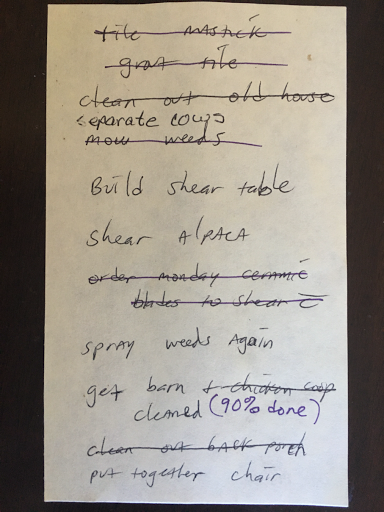 tile mastick
grout tile
clean out old house
separate cows
mow weeds
Build shear table
shear AlpACA
order monday ceramic
blades to shear c
spray weeds Again
get barn + chicken coop
cleaned (90% done)
clean out back porch
put together chair